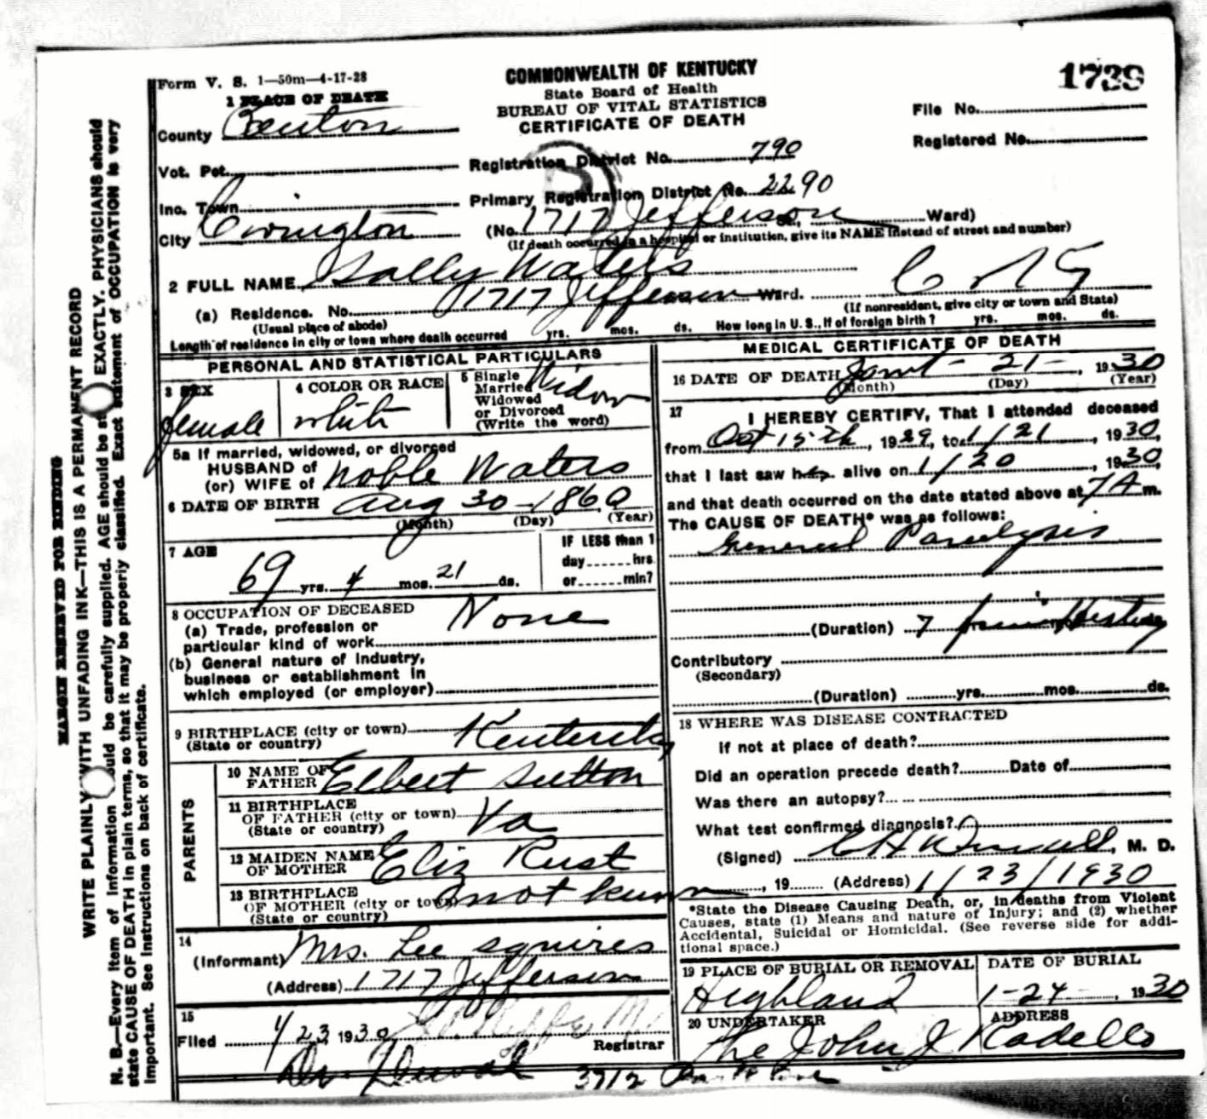 Form V. S. 1—50m—4-17-28
COMMONWEALTH OF KENTUCKY
State Board of Health
BUREAU OF VITAL STATISTICS
CERTIFICATE OF DEATH
1739
File No.
Registered No.
1 PLACE OF DEATH
County Kenton
Vot. Pct.
Registration District No. 790
Inc. Town
Primary Registration District No. 2290
City Covington (No. 1717 Jefferson St., Ward)
(If death occurred in a hospital or institution, give its NAME instead of street and number)
2 FULL NAME Sally Waters
(a) Residence. No. 1717 Jefferson Ward.
(Usual place of abode)
(If nonresident, give city or town and State)
Length of residence in city or town where death occurred yrs. mos. ds. How long in U. S., if of foreign birth? yrs. mos. ds.
PERSONAL AND STATISTICAL PARTICULARS
3 SEX
female
4 COLOR OR RACE
white
5 Single
Married
Widowed
or Divorced
(Write the word)
Widow
5a If married, widowed, or divorced
HUSBAND of
(or) WIFE of Noble Waters
6 DATE OF BIRTH Aug 30 - 1860
(Month) (Day) (Year)
7 AGE
69 yrs. 4 mos. 21 ds.
IF LESS than 1
day hrs.
or min?
8 OCCUPATION OF DECEASED
(a) Trade, profession or
particular kind of work None
(b) General nature of industry,
business or establishment in
which employed (or employer)
9 BIRTHPLACE (city or town) Kentucky
(State or country)
PARENTS
10 NAME OF
FATHER Elbert Sutton
11 BIRTHPLACE
OF FATHER (city or town) Va
(State or country)
12 MAIDEN NAME
OF MOTHER Eliz Rust
13 BIRTHPLACE
OF MOTHER (city or town) not known
(State or country)
14
(Informant) Mrs. Lee Squires
(Address) 1717 Jefferson
15
Filed 1/23 1930
Registrar
MEDICAL CERTIFICATE OF DEATH
16 DATE OF DEATH Jan - 21 - , 1930
(Month) (Day) (Year)
17
I HEREBY CERTIFY, That I attended deceased
from Oct 15th, 1929, to 1/21, 1930,
that I last saw her alive on 1/20, 1930,
and that death occurred on the date stated above at 7 A m.
The CAUSE OF DEATH* was as follows:
General Paralysis
(Duration) 7
Contributory
(Secondary)
(Duration) yrs. mos. ds.
18 WHERE WAS DISEASE CONTRACTED
If not at place of death?
Did an operation precede death? Date of
Was there an autopsy?
What test confirmed diagnosis?
(Signed) M. D.
, 19 (Address) 1/23/1930
*State the Disease Causing Death, or, in deaths from Violent
Causes, state (1) Means and nature of Injury; and (2) whether
Accidental, Suicidal or Homicidal. (See reverse side for addi-
tional space.)
19 PLACE OF BURIAL OR REMOVAL
Highland
DATE OF BURIAL
1-24-, 1930
20 UNDERTAKER
ADDRESS
The John J Radello
3712
MARGIN RESERVED FOR BINDING
WRITE PLAINLY WITH UNFADING INK—THIS IS A PERMANENT RECORD
N. B.—Every item of information should be carefully supplied. AGE should be stated EXACTLY. PHYSICIANS should
state CAUSE OF DEATH in plain terms, so that it may be properly classified. Exact statement of OCCUPATION is very
important. See instructions on back of certificate.